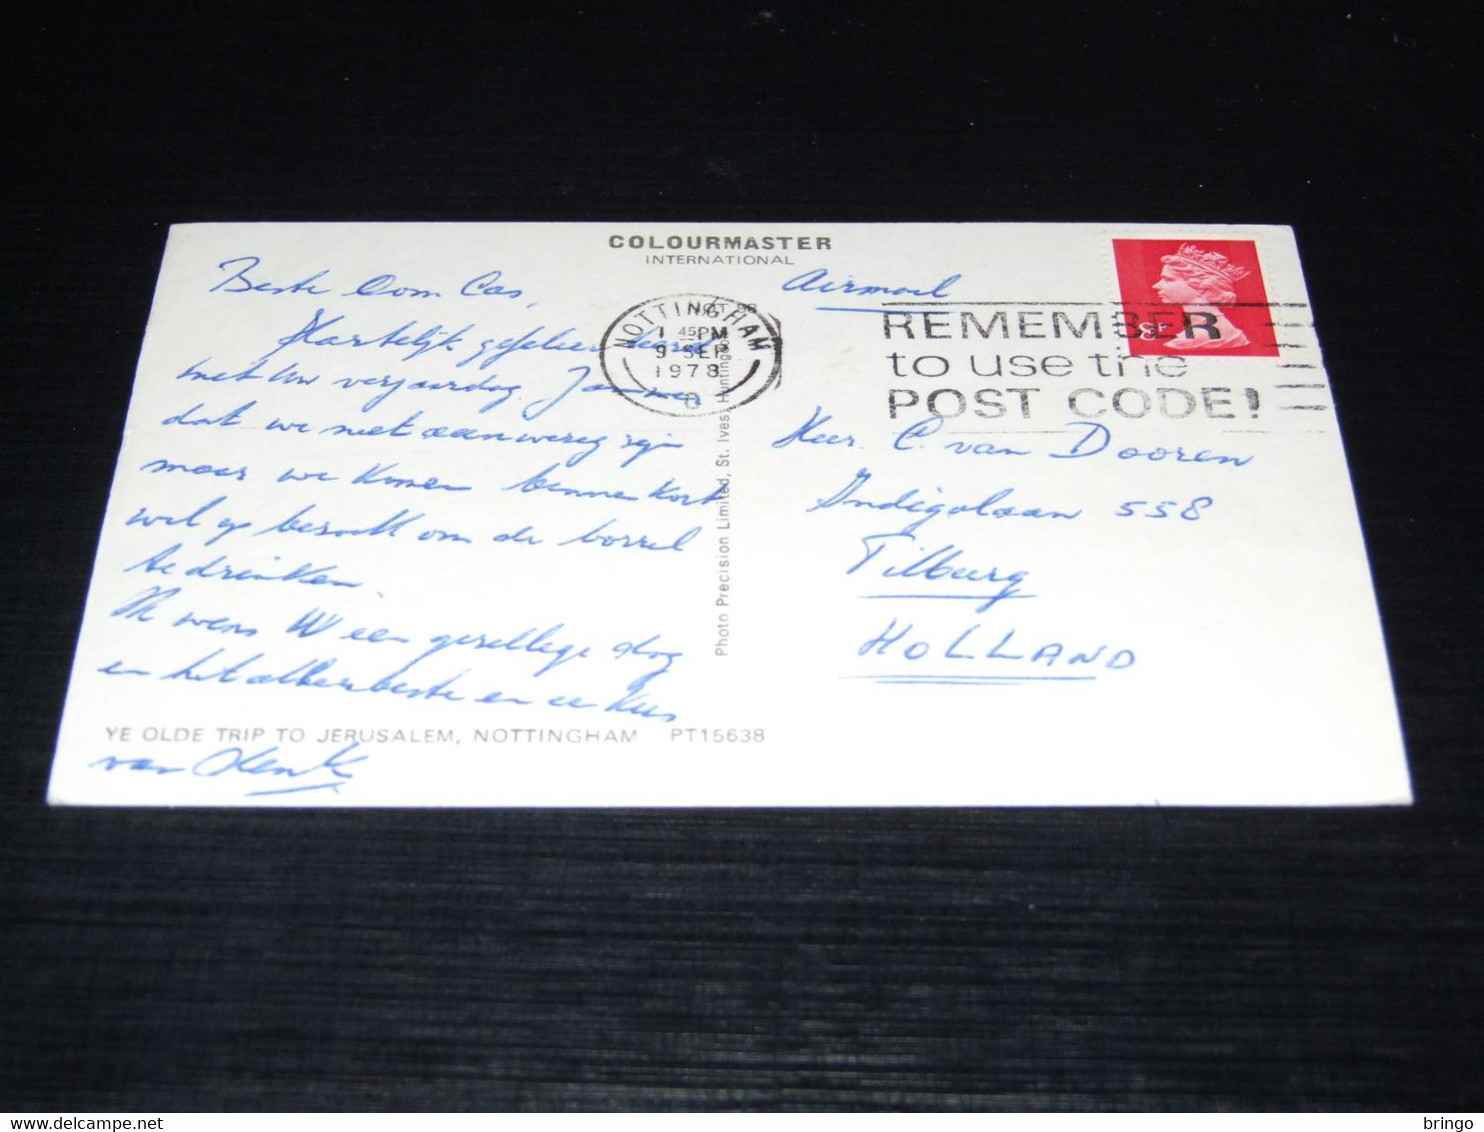 COLOURMASTER
INTERNATIONAL
Beste Oom Cas,
Hartelijk gefeliciteerd
met Uw verjaardag. Jammer
dat we niet aanwezig zijn
maar we komen binnenkort
wel op bezoek om de borrel
te drinken.
Ik wens U een gezellige dag
en het allerbeste en een kus
van Henk
YE OLDE TRIP TO JERUSALEM, NOTTINGHAM PT15638
Photo Precision Limited, St. Ives, Huntingdon
NOTTINGHAM
1 45 PM
9 SEP
1978
Airmail
REMEMBER
to use the
POST CODE!
Heer. C. van Dooren
Indigolaan 558
Tilburg
HOLLAND
bringo